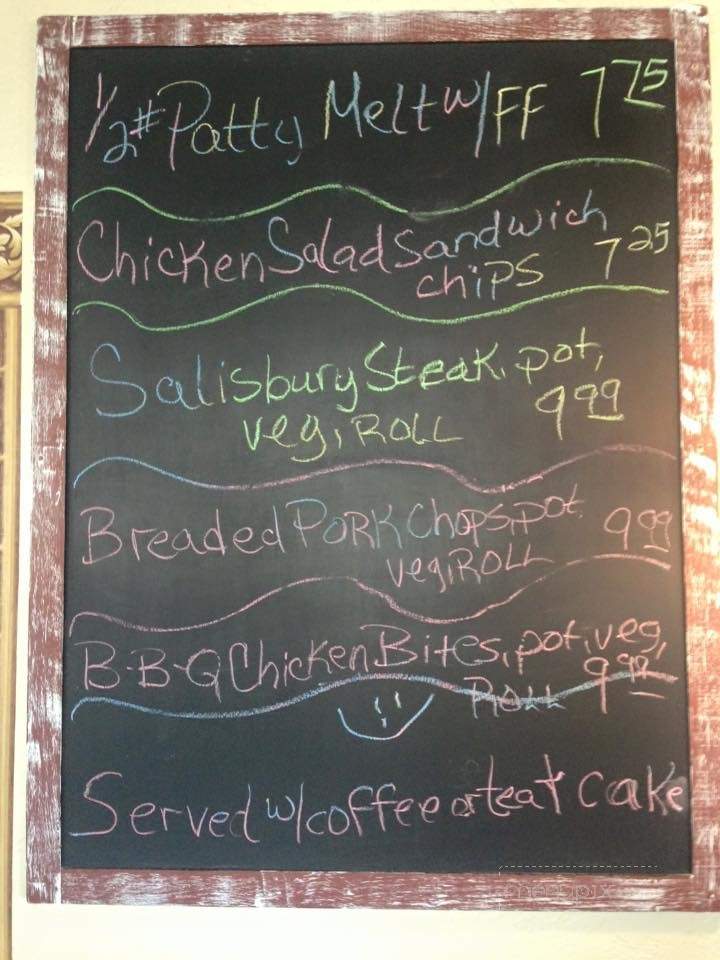 1/2# Patty Melt w/ FF 7 75
Chicken Salad Sandwich
chips 7 25
Salisbury Steak, pot,
veg, ROLL 9 99
Breaded PORK Chops, pot,
veg, ROLL 9 99
B-B-Q Chicken Bites, pot, veg,
ROLL 9 99
Served w/ coffee or tea + cake